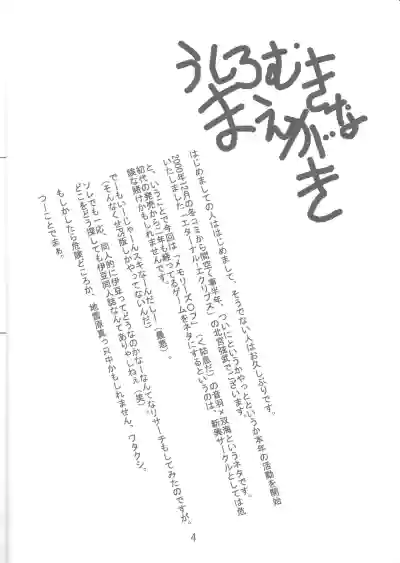 うしろむき
まえがきな
はじめましての人ははじめまして、そうでない人はお久しぶりです。
2000年12月の冬コミから間空く事半年、ついにというかやっとというか本年の活動を開始
いたしました「エターナル・エクリプス」の北宮弦武でございます。
と、いうことで今回は「メモリーズ〇フ」(く詰底だ)の音羽×双海というネタです。
初代の発売からニ年も経ってるゲームをネタにするというのは、新興サークルとしては危
険な賭けかもしれませんです。
でーもいーじゃーんスキなーんだしー(最悪)
(そんなくせPS版しかやってないんだ)
ソレでも一応、同人的に伊豆ってどうなのかなーなんてなリサーチもしてみたのですが。
どこをどう探しても伊豆同人誌なんてありゃしねぇ(笑)
もしかしたら危険どころか、地雷原真っ只中かもしれません、ワタクシ。
つーことでまぁ。
4